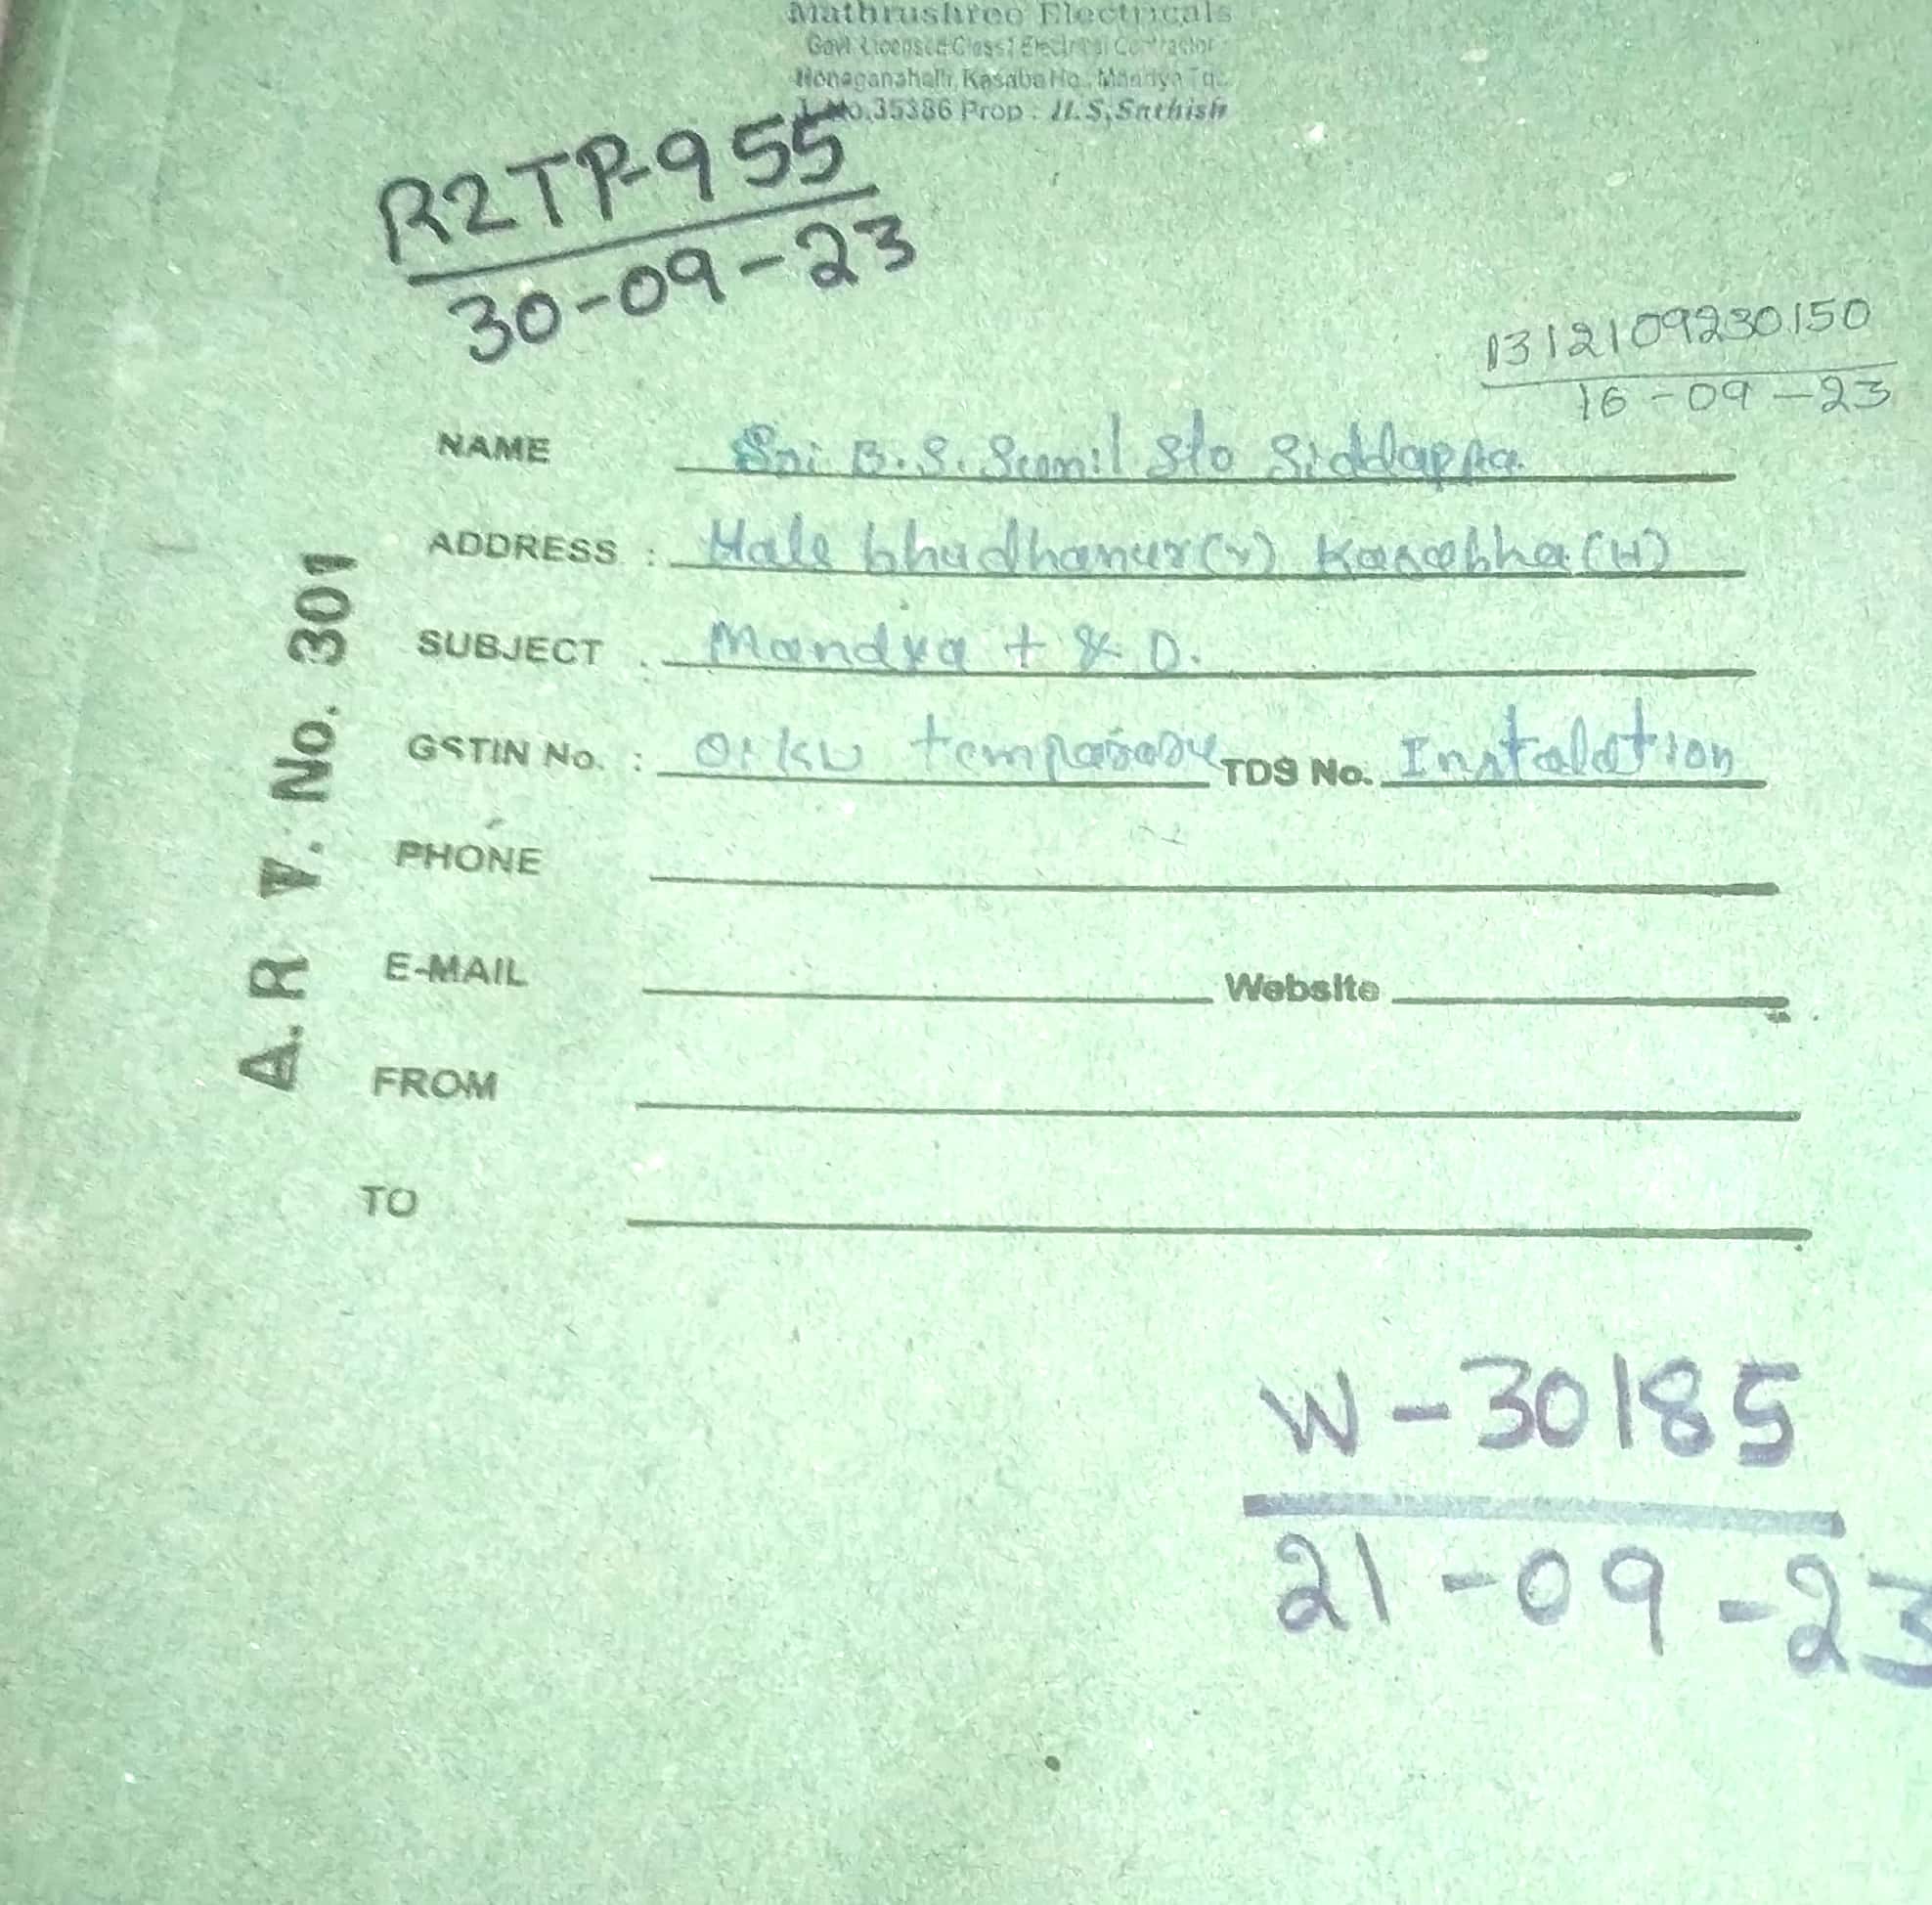 Mathrushree Electricals
Govt Licensed Class1 Electrical Contractor
Honaganahalli, Kasaba Ho., Mandya Tq.
L.No.35386 Prop : H.S.Sathish
R2TP-955
30-09-23
1312109230150
16-09-23
NAME Sri B.S. Sunil S/o Siddappa.
ADDRESS : Hale bhudhanur(v) Kasabha(H)
SUBJECT Mandya t & D.
GSTIN No. : 01 KW temporory TDS No. Instalation
PHONE
E-MAIL Website
FROM
TO
A.R V. No. 301
W-30185
21-09-23